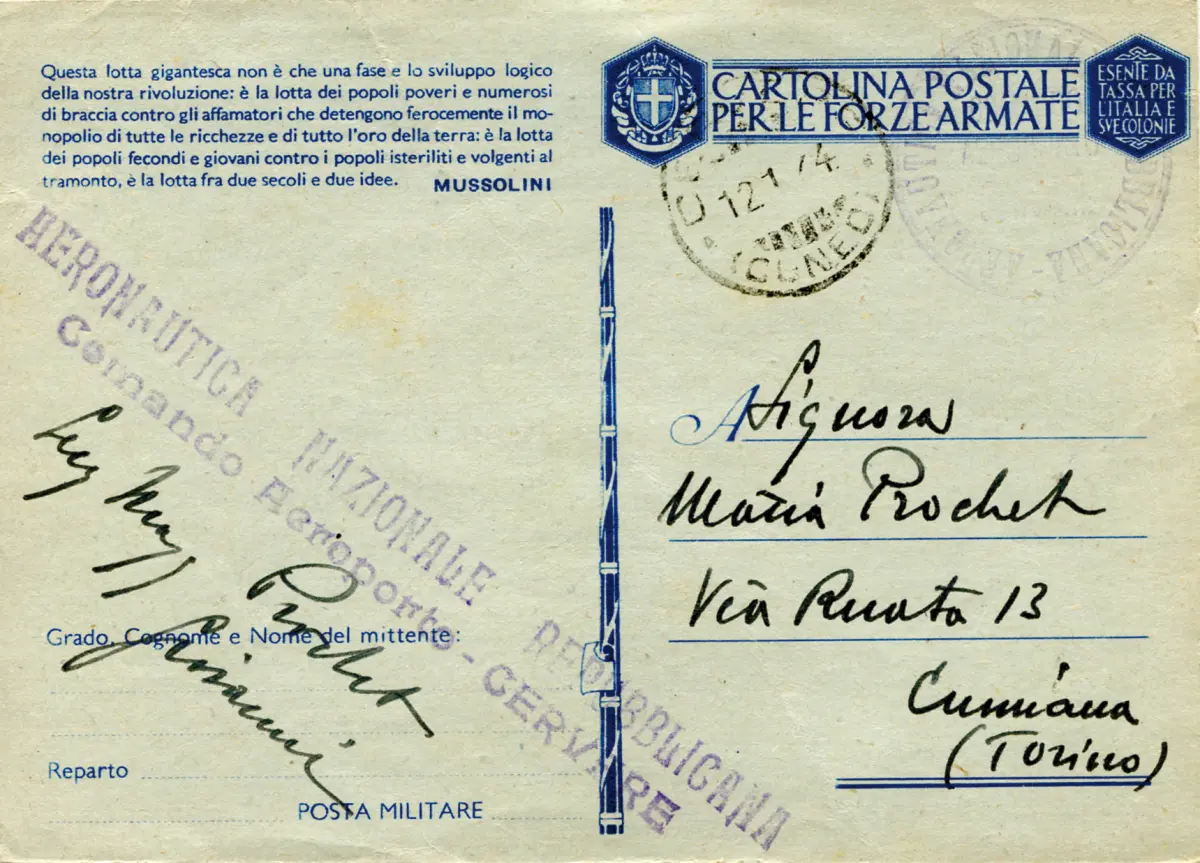 Questa lotta gigantesca non è che una fase e lo sviluppo logico
della nostra rivoluzione: è la lotta dei popoli poveri e numerosi
di braccia contro gli affamatori che detengono ferocemente il mo-
nopolio di tutte le ricchezze e di tutto l'oro della terra: è la lotta
dei popoli fecondi e giovani contro i popoli isteriliti e volgenti al
tramonto, è la lotta fra due secoli e due idee.
MUSSOLINI
CARTOLINA POSTALE
PER LE FORZE ARMATE
ESENTE DA
TASSA PER
L'ITALIA E
SVE COLONIE
12 1 74
(CUNEO)
AERONAUTICA NAZIONALE REPUBBLICANA
Comando Aeroporto - CERVERE
Prochet
Giovanni
Grado, Cognome e Nome del mittente:
Reparto
POSTA MILITARE
A Signora
Maria Prochet
Via Ruata 13
Cumiana
(Torino)